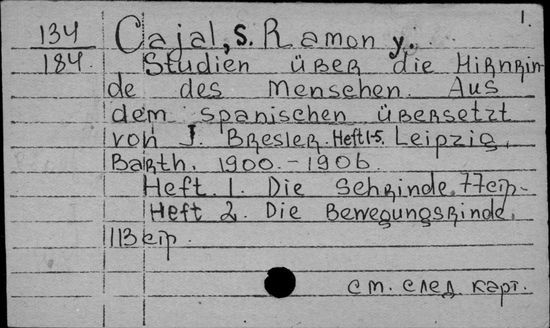 1.
134
184
Cajal, S. Ramon y.
Studien über die Hirnrin-
de des Menschen. Aus
dem spanischen übersetzt
von J. Bresler. Heft 1-5. Leipzig,
Barth, 1900.-1906.
Heft. 1. Die Sehrinde. 77 стр.
Heft 2. Die Bewegungsrinde.
113 стр.
см. след карт.